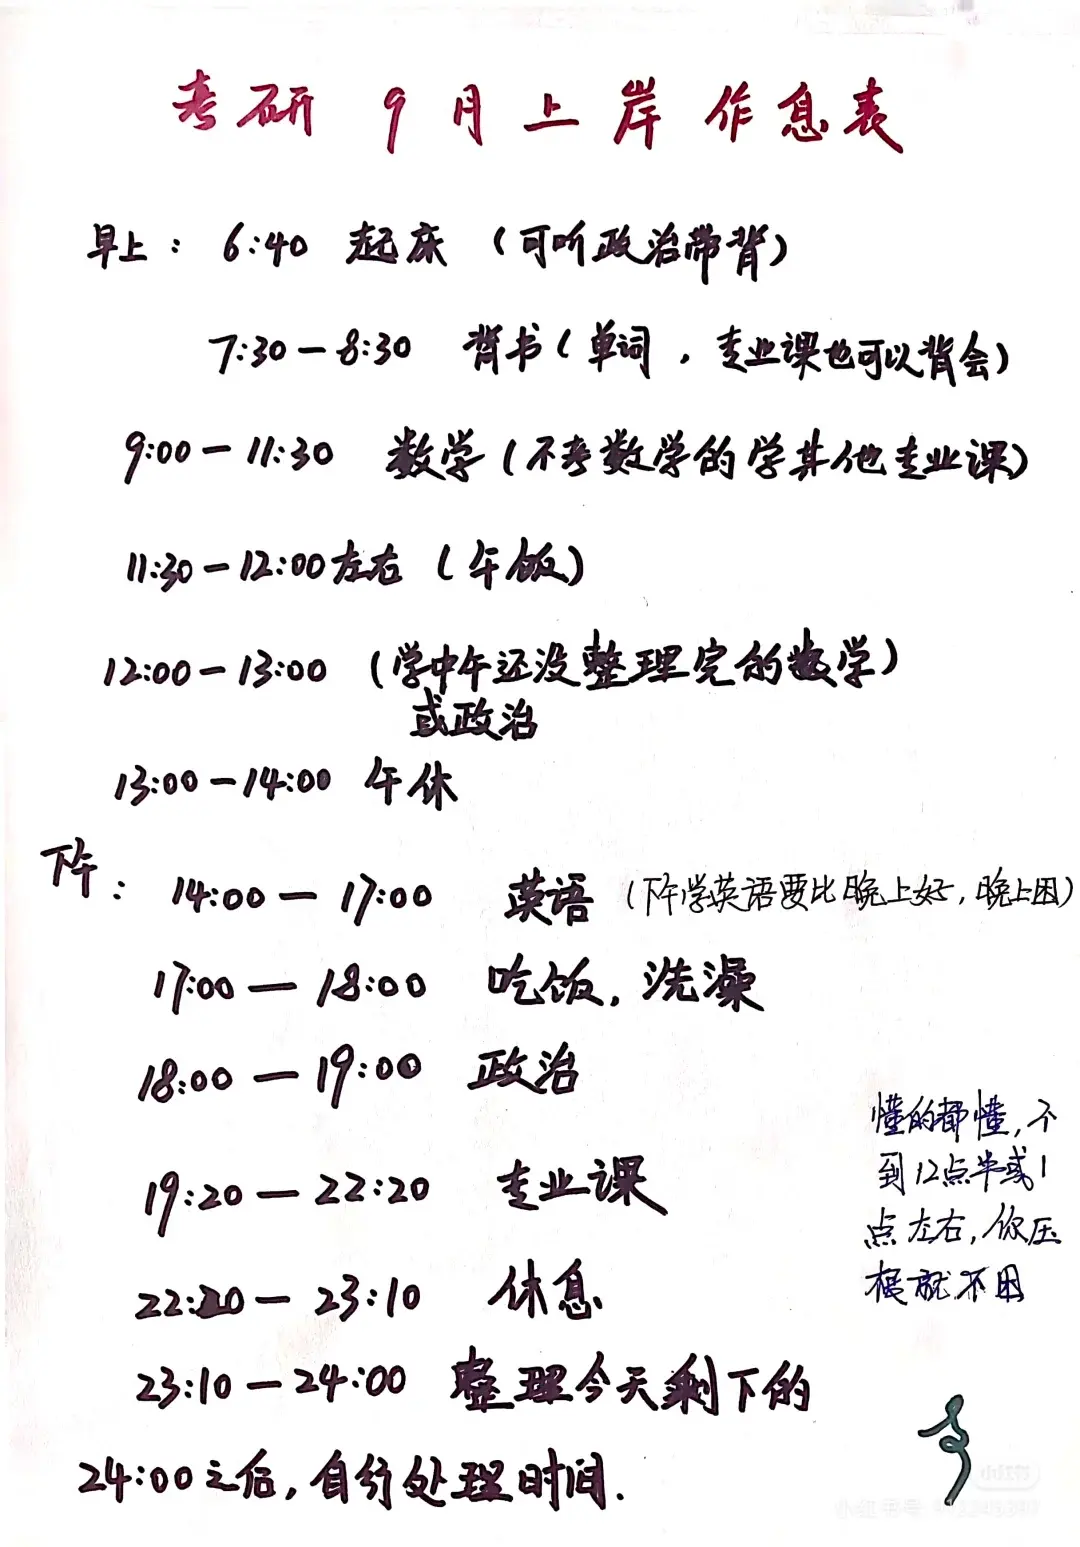 考研 9月上岸 作息表
早上：6:40 起床（可听政治带背）
7:30—8:30 背书（单词，专业课也可以背会）
9:00—11:30 数学（不考数学的学其他专业课）
11:30—12:00左右（午饭）
12:00—13:00（学中午还没整理完的数学）
或政治
13:00—14:00 午休
下午：14:00—17:00 英语（下午学英语要比晚上好，晚上困）
17:00—18:00 吃饭，洗澡
18:00—19:00 政治
懂的都懂，不
到12点半或1
点左右，你压
根就不困
19:20—22:20 专业课
22:20—23:10 休息
23:10—24:00 整理今天剩下的
24:00之后，自行处理时间.
小红书